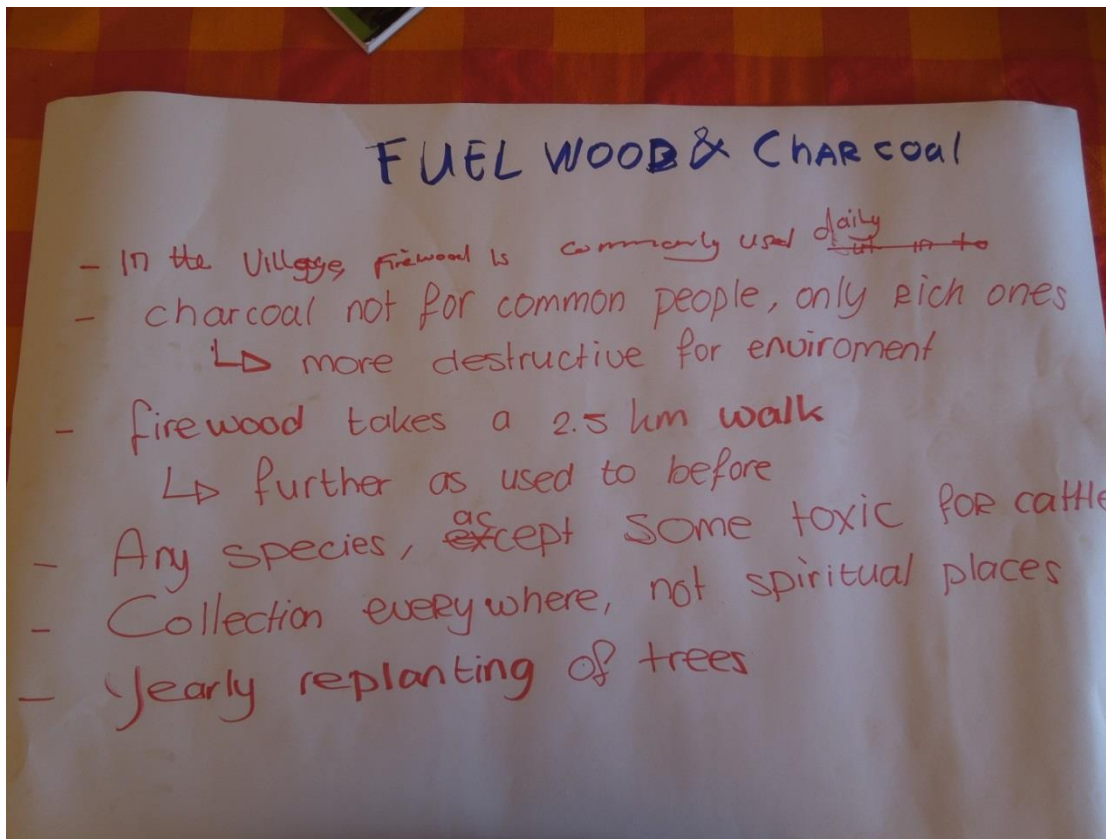 FUEL WOOD & CHARcoal
- In the Village, firewood is commonly used daily
- charcoal not for common people, only Rich ones
↳ more destructive for enviroment
- firewood takes a 2.5 km walk
↳ further as used to before
- Any species, accept some toxic foR cattle
- Collection eveRywhere, not spiritual places
- Yearly replanting of trees